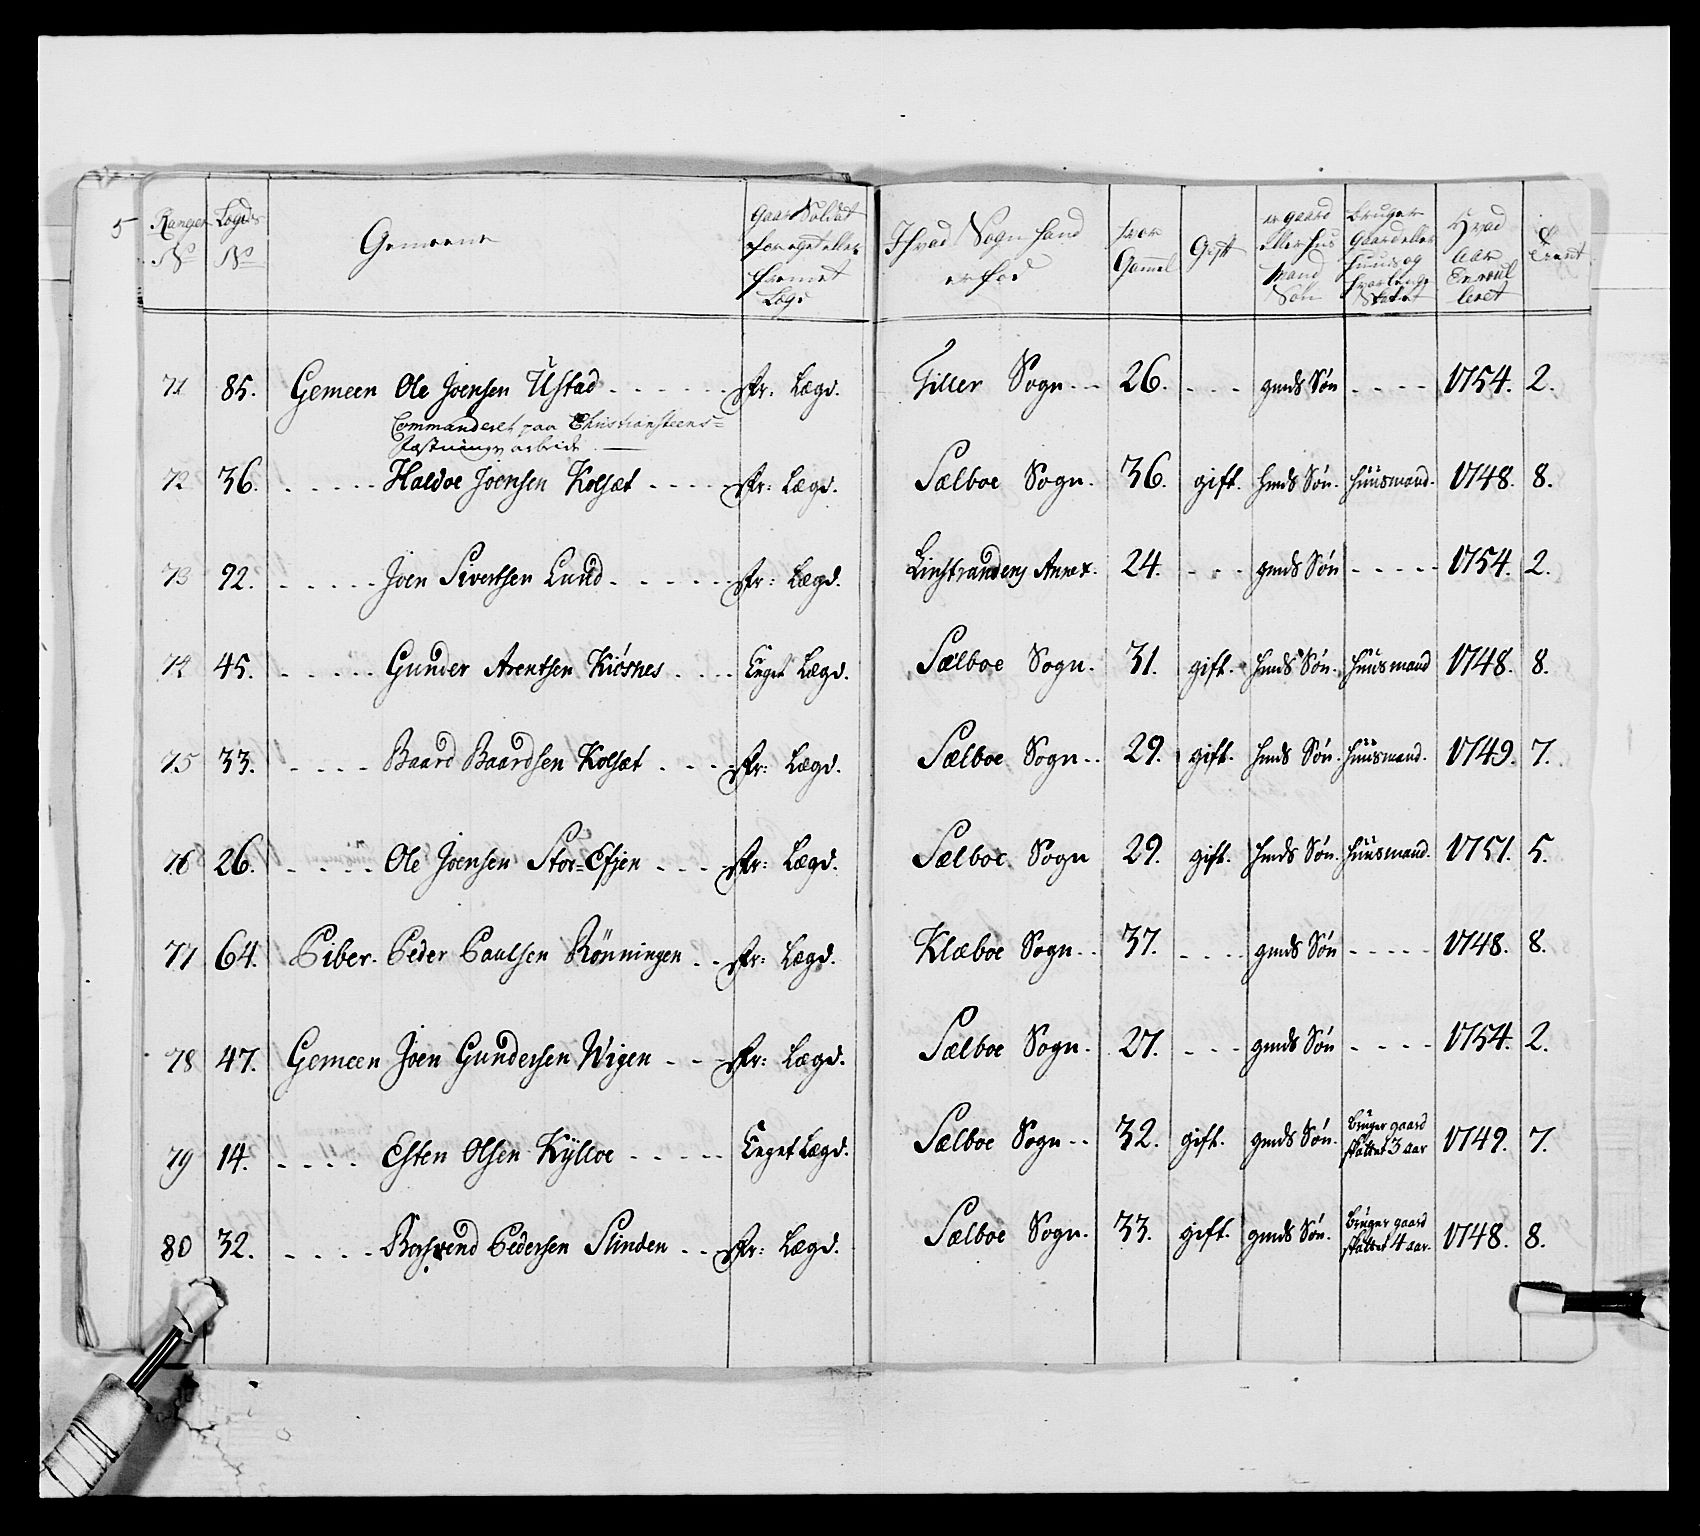 5
Ranger No
Lægds No
Gemeene
gaar Soldat for eget eller fremet Lægd
I hvad Sogn hand er fød
hvor Gammel
Gift
er gaard eller hus mand Søn
bruger Gaard eller huus og hvor længe Skatet
Hvad Aar Enroulleret
Tient
71 85. Gemeen Ole Joensen Ustad - - - - - fr: Lægd. Tiller Sogn - - 26. - - - gmds Søn - - - - 1754. 2.
Commanderet paa Christiansteens=
Fæstnings arbeide
72 36. - - - - - Haldoe Joensen Kolsæt - - - - fr: Lægd. Sælboe Sogn. 36. gift. hmds Søn. huusmand. 1748. 8.
73 92. - - - - - Joen Sivertsen Lund - - - - - fr: Lægd. Linstrandens Annex. 24. - - - gmds Søn - - - - - 1754. 2.
74 45. - - - - - Gunder Arentsen Kiösnes - - - - Eeget Lægd. Sælboe Sogn. 31. gift. hmds Søn. huusmand 1748. 8.
75 33. - - - - Baard Baardsen Kolsæt - - - - fr: Lægd. Sælboe Sogn - - 29. gift. hmds Søn. huusmand. 1749. 7.
76 26. - - - - Ole Joensen Stor=Efjen - - - fr: Lægd. Sælboe Sogn 29. gift. hmds Søn. huusmand. 1751. 5.
77 64. Piber. Peder Paulsen Rönningen - - fr: Lægd. Klæboe Sogn - - 37. - - - - gmds Søn - - - - - 1748. 8.
78 47. Gemeen Joen Gundersen Wigen - - - fr: Lægd. Sælboe Sogn. 27. - - - gmds Søn - - - - 1754. 2.
79 14. - - - - Esten Olsen Kylloe - - - - - Eeget Lægd. Sælboe Sogn - - 32. gift. gmds Søn. bruger gaard skattet 3 aar 1749. 7.
80 32. - - - - Baarend Pedersen Slinden - - fr: Lægd. Sælboe Sogn. 33. gift. gmds Søn. bruger gaard skattet 4 aar. 1748. 8.